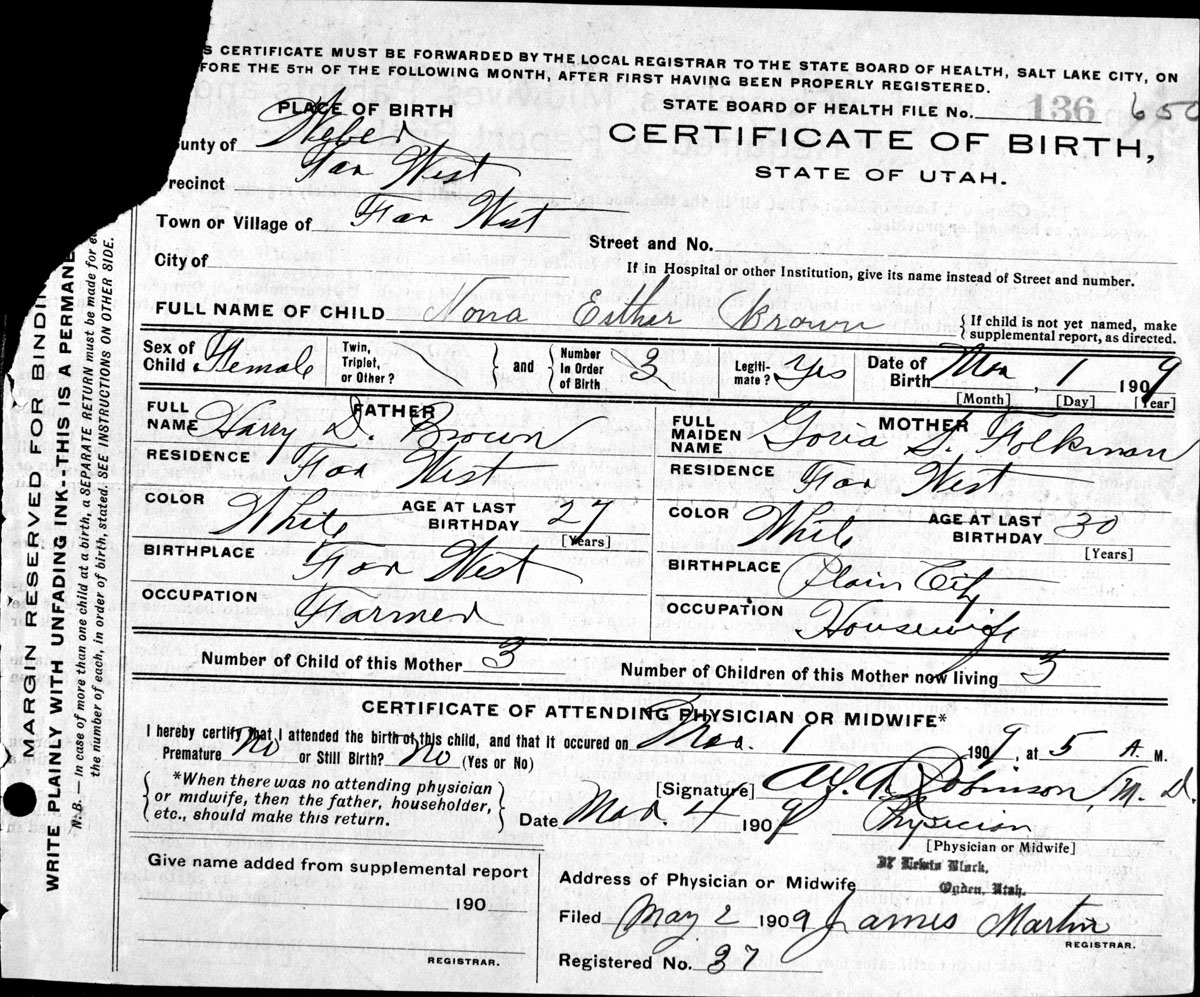 S CERTIFICATE MUST BE FORWARDED BY THE LOCAL REGISTRAR TO THE STATE BOARD OF HEALTH, SALT LAKE CITY, ON
FORE THE 5TH OF THE FOLLOWING MONTH, AFTER FIRST HAVING BEEN PROPERLY REGISTERED.
PLACE OF BIRTH
STATE BOARD OF HEALTH FILE No. 136 650
ounty of Weber
CERTIFICATE OF BIRTH,
STATE OF UTAH.
recinct Far West
Town or Village of Far West
Street and No.
City of
If in Hospital or other Institution, give its name instead of Street and number.
FULL NAME OF CHILD Nona Esther Brown
{If child is not yet named, make
supplemental report, as directed.
Sex of Child Female
Twin, Triplet, or Other?
} and {
Number In Order of Birth 3
Legiti-mate? Yes
Date of Birth Mar, 1 1909
[Month] [Day] [Year]
FATHER
FULL NAME Harry D. Brown
RESIDENCE Far West
COLOR White
AGE AT LAST BIRTHDAY 27
[Years]
BIRTHPLACE Far West
OCCUPATION Farmer
MOTHER
FULL MAIDEN NAME S. Folkman
RESIDENCE Far West
COLOR White
AGE AT LAST BIRTHDAY 30
[Years]
BIRTHPLACE Plain City
OCCUPATION Housewife
Number of Child of this Mother 3
Number of Children of this Mother now living 3
CERTIFICATE OF ATTENDING PHYSICIAN OR MIDWIFE*
I hereby certify that I attended the birth of this child, and that it occured on Mar. 1 1909, at 5 A. M.
Premature No or Still Birth? No (Yes or No)
{*When there was no attending physician
or midwife, then the father, householder,
etc., should make this return.}
[Signature] Robinson, M. D.
Date Mar. 4 1909
Physician
[Physician or Midwife]
Give name added from supplemental report
190
REGISTRAR.
Address of Physician or Midwife
Lewis Block,
Ogden, Utah.
Filed May 2 1909 James Martin
REGISTRAR.
Registered No. 37
MARGIN RESERVED FOR BINDIN
WRITE PLAINLY WITH UNFADING INK--THIS IS A PERMANE
N. B. — In case of more than one child at a birth, a SEPARATE RETURN must be made for ea
the number of each, in order of birth, stated. SEE INSTRUCTIONS ON OTHER SIDE.